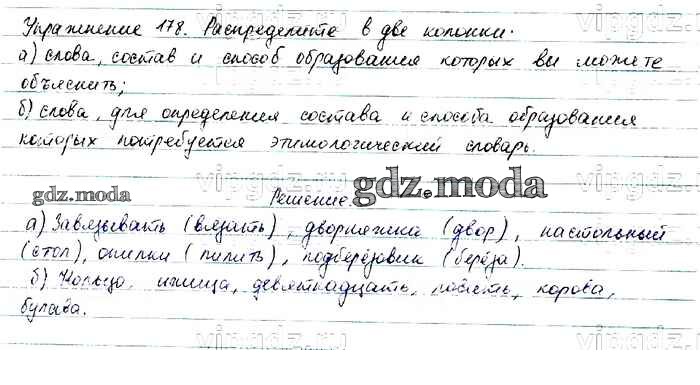 Упражнение 178. Распределите в две колонки.
а) слова, состав и способ образования которых вы можете
объяснить;
б) слова, для определения состава и способа образования
которых потребуется этимологический словарь.
gdz.moda
Решение.
gdz.moda
а) Завязывать (вязать), дворняжка (двор), настольный
(стол), опилки (пилить), подберёзовик (берёза).
б) Кольцо, девятнадцать, корова,
булава.